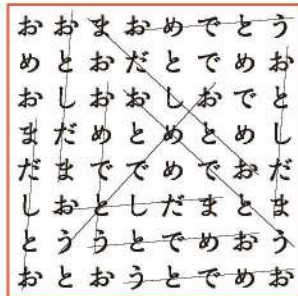 おおまおめでとう
めとおだとでめお
おしおおしおでと
まだめとめとめし
だまででめでおだ
しおとしだまとま
とううとでめおう
おとおうとでめお